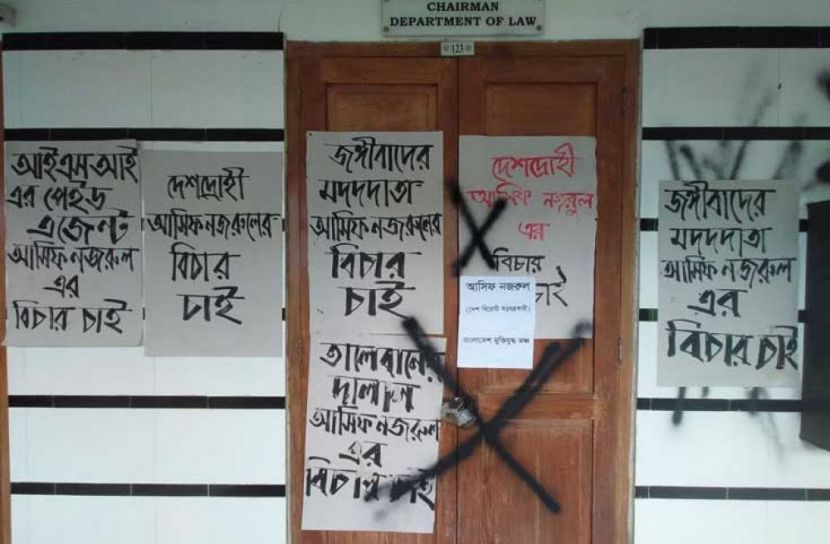 CHAIRMAN
DEPARTMENT OF LAW
123
আইএসআই
এর পেইড
এজেন্ট
আসিফ নজরুল
এর
বিচার চাই
দেশদ্রোহী
আসিফ নজরুলের
বিচার
চাই
জঙ্গীবাদের
মদদদাতা
আসিফ নজরুলের
বিচার
চাই
তালেবানের
দালাল
আসিফ নজরুল
এর
বিচার চাই
দেশদ্রোহী
আসিফ নজরুল
এর
বিচার
চাই
আসিফ নজরুল
(দেশ বিরোধী ষড়যন্ত্রকারী)
বাংলাদেশ মুক্তিযুদ্ধ মঞ্চ
জঙ্গীবাদের
মদদদাতা
আসিফ নজরুল
এর
বিচার চাই